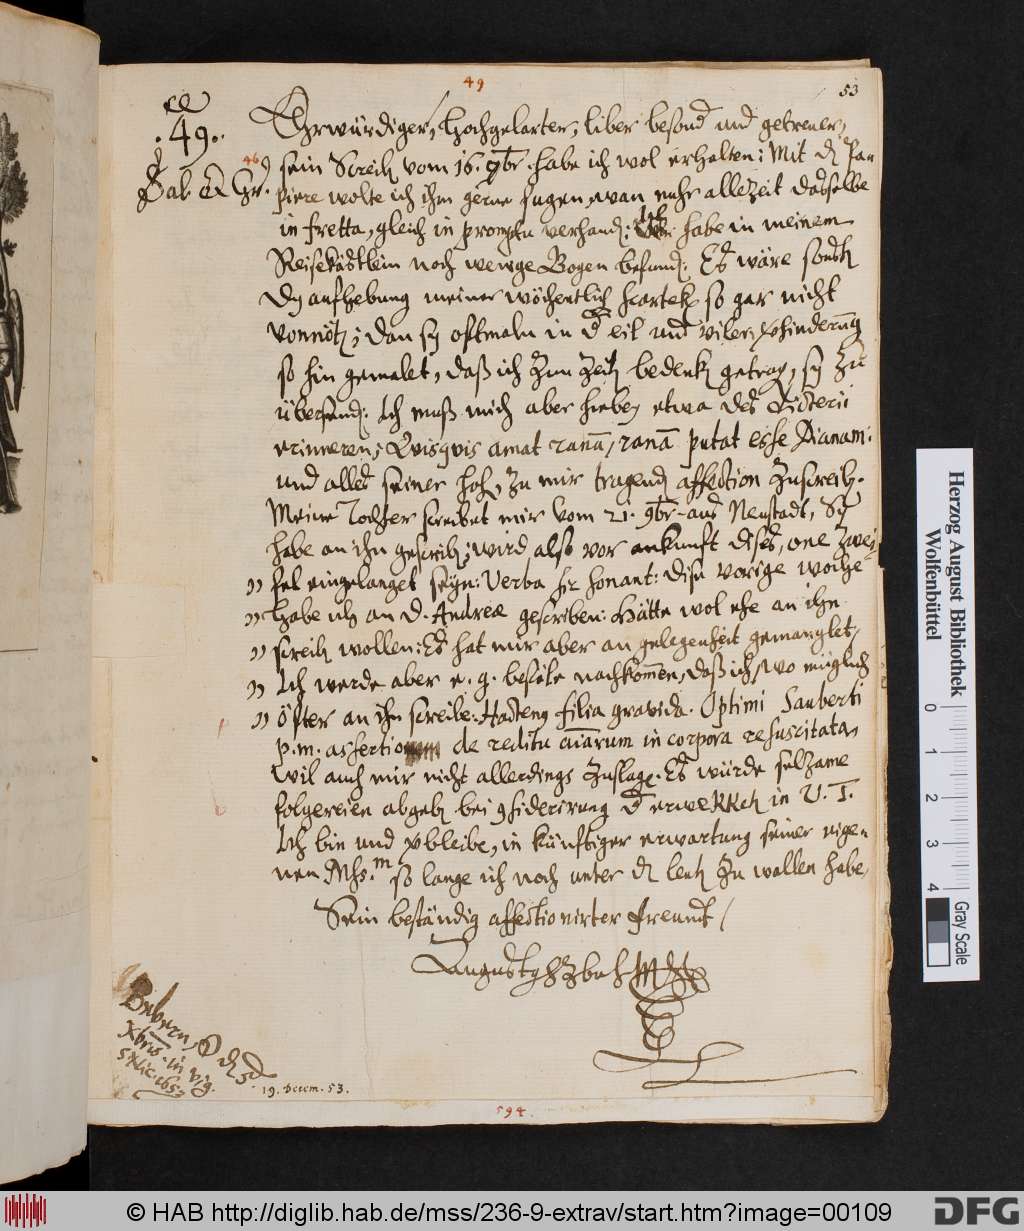 49
53
.49.
46
Ehrwürdiger, Hochgelarter, liber besond. und getreuer,
sein Schreib. vom 16. 9br. habe ich wol erhalten: Mit d. Pa-
piere wolte ich ihm gerne fugen, wan mihr allezeit dasselbe
in fretta, gleich in promptu verhand.: Ich habe in meinem
Reisekästlein noch wenige Bogen befund. Es wäre sonst
Dy aufhebung meiner wöchentlich. so gar nicht
vonnöt.; dan sy oftmaln in d. eil und viler verhinderung
so hin gemalet, daß ich Zun Zeit. bedenk. getrag. sy zu
übersend. Ich muß mich aber hirbey etwa des
erinneren; Quisquis amat ranã, ranã putat esse Dianam:
und alles seiner hoh. zu mir tragend. affection Zuschreib.
Meine Tochter schreibet mir vom 21. 9br. aus Neustadt, Sy
habe an ihn geschrib.; wird also vor ankunft dises, one Zwei-
fel eingelanget seyn: Verba sic sonant: dise vorige woche
habe ich an D. Andreæ geschriben: Hätte wol ehe an ihn
schreib. wollen: Es hat mir aber an gelegenheit gemanglet,
Ich werde aber e. g. befele nachkom̃en, daß ich, wo müglich
öfter an ihn schreibe: Hactenq filia gravida. Optimi Sauberti
p. m. assertio de reditu aĩarum in corpora resuscitata,
wil auch mir nicht allerdings Zuschlag. Es würde selzame
folgereien abgeb. bei considerirung d. erwekkt. in V. T.
Ich bin und verbleibe, in künftiger erwartung seiner eige-
nen Mss. so lange ich noch unter d. leut. zu wallen habe,
Sein beständig affectionirter freundt,
Augustus HZBuL
Bebern, d. 5
Xbris. in vig.
S Nic. 1653
19. Decem. 53.
594.
Herzog August Bibliothek
Wolfenbüttel
0 1 2 3 4
Gray Scale
© HAB http://diglib.hab.de/mss/236-9-extrav/start.htm?image=00109
DFG